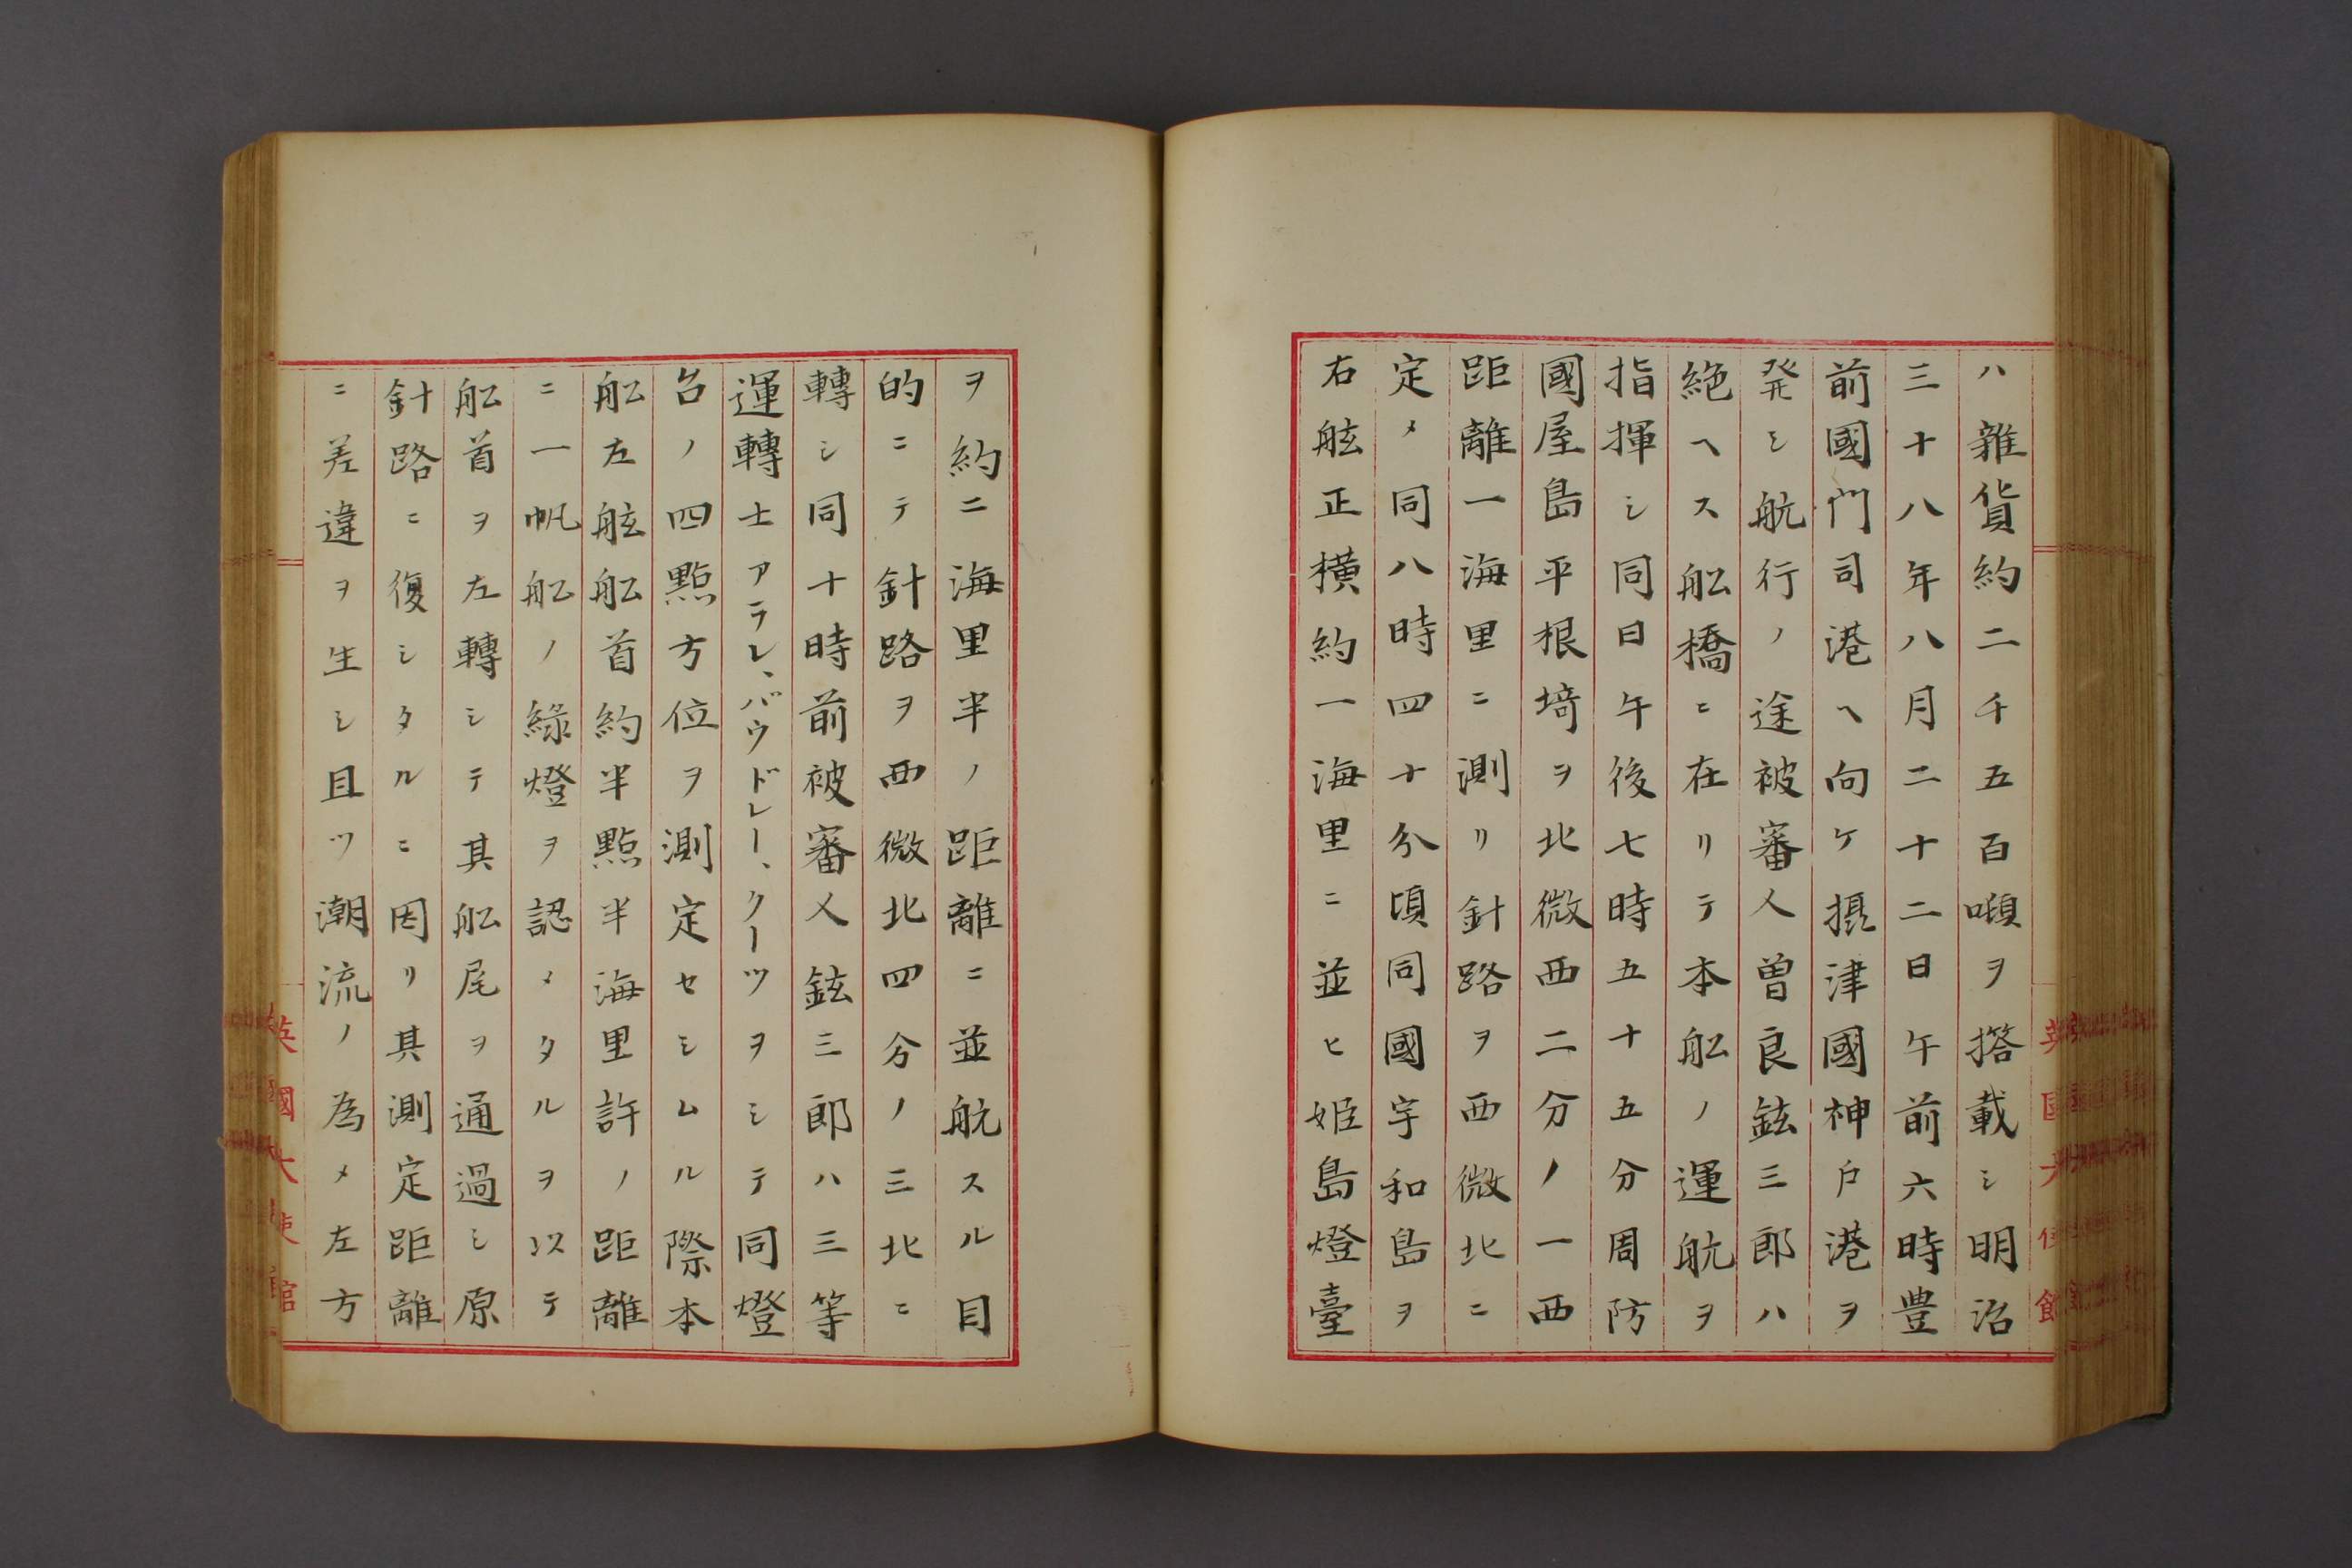 ハ雜貨約二千五百噸ヲ搭載シ明治
三十八年八月二十二日午前六時豊
前國門司港ヘ向ケ摂津國神戸港ヲ
発シ航行ノ途被審人曽良鉉三郎ハ
絶ヘス舩橋ニ在リテ本舩ノ運航ヲ
指揮シ同日午後七時五十五分周防
國屋島平根埼ヲ北微西二分ノ一西
距離一海里ニ測リ針路ヲ西微北ニ
定メ同八時四十分頃同國宇和島ヲ
右舷正横約一海里ニ並ヒ姫島燈臺
ヲ約二海里半ノ距離ニ並航スル目
的ニテ針路ヲ西微北四分ノ三北ニ
轉シ同十時前被審人鉉三郎ハ三等
運轉士アラレ、バウドレー、クーツヲシテ同燈
台ノ四點方位ヲ測定セシムル際本
舩左舷舩首約半點半海里許ノ距離
ニ一帆舩ノ綠燈ヲ認メタルヲ以テ
舩首ヲ左轉シテ其舩尾ヲ通過シ原
針路ニ復シタルニ因リ其測定距離
ニ差違ヲ生シ且ツ潮流ノ為メ左方
英國大使館